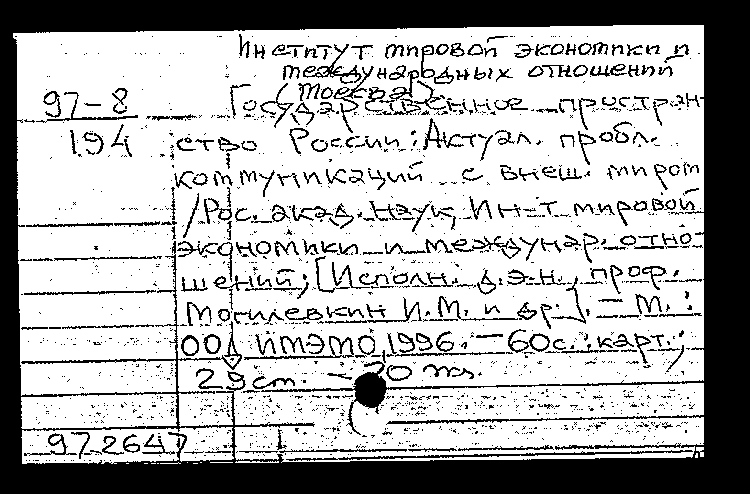 Институт мировой экономики и
международных отношений
(Москва).
97-8 Государственное простран-
194 ство России: Актуал. пробл.
коммуникаций с внеш. миром
/Рос. акад. наук, Ин-т мировой
экономики и междунар. отно-
шений; [Исполн. д.э.н., проф.
Могилевкин И.М. и др.]. — М. :
ИМЭМО, 1996. — 60с. : карт.;
29 cm. — 70 экз.
972647